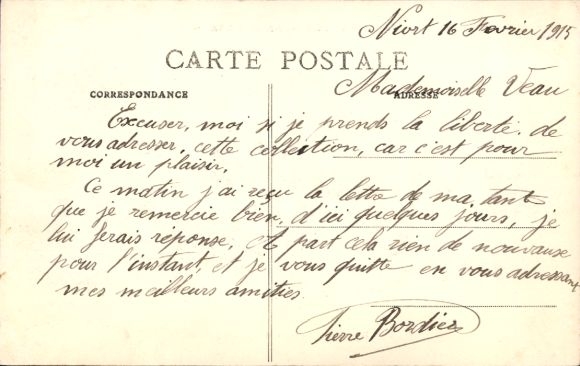 Niort 16 Fevrier 1915
CARTE POSTALE
Mademoiselle Veau
CORRESPONDANCE
ADRESSE
Excuser, moi si je prends la liberté de
vous adresser, cette collection, car c'est pour
moi un plaisir.
Ce matin j'ai reçu la lettre de ma tante
que je remercie bien, d'ici quelques jours, je
lui ferais réponse. A part cela rien de nouveause
pour l'instant, et je vous quitte en vous adressant
mes meilleurs amitiés.
Pierre Bordier